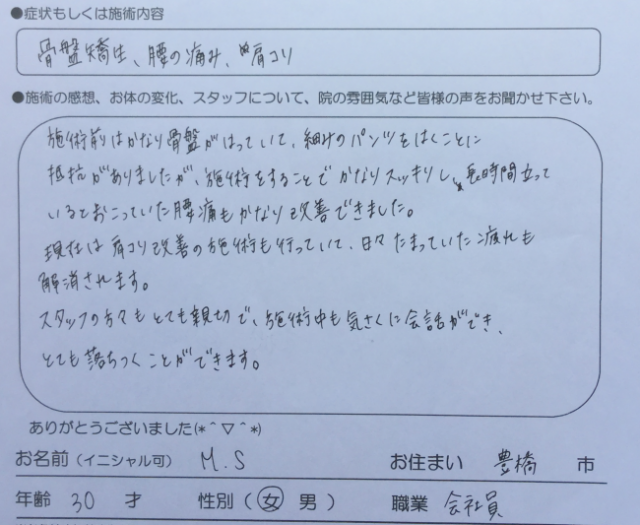 ●症状もしくは施術内容
骨盤矯生、腰の痛み、肩コリ
●施術の感想、お体の変化、スタッフについて、院の雰囲気など皆様の声をお聞かせ下さい。
施術前はかなり骨盤がはっていて、細みのパンツをはくことに
抵抗がありましたが、施術をすることでかなりスッキリし、長時間立って
いるとおこっていた腰痛もかなり改善できました。
現在は肩コリ改善の施術も行っていて、日々たまっていた疲れも
解消されます。
スタッフの方々もとても親切で、施術中も気さくに会話ができ、
とても落ちつくことができます。
ありがとうございました(*＾▽＾*)
お名前(イニシャル可) M.S お住まい 豊橋 市
年齢 30 才 性別 ( 女 男 ) 職業 会社員